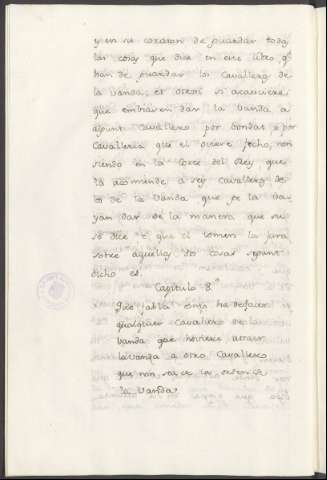 y en su corazon de guardar todas
las cosas que dize en este libro qe
han de guardar los Cavalleros de
la Vanda; et otrosi si acaeciere
que embiaren dar la Vanda a
algunt Cavallero por bondat o por
Cavalleria que el oviere fecho, non
siendo en la Corte del Rey que
la acomiende a seys Cavalleros de
los de la Vanda que ge la va
yan dar de la manera que su
so dize e que el tomen la jura
sobre aquellas dos cosas segunt
dicho es.
Capitulo 8.º
Que fabla como ha de facer
qualquier Cavallero de la
banda que hoviere atraer
la vanda a otro Cavallero
que non sea de la orden de
la Vanda